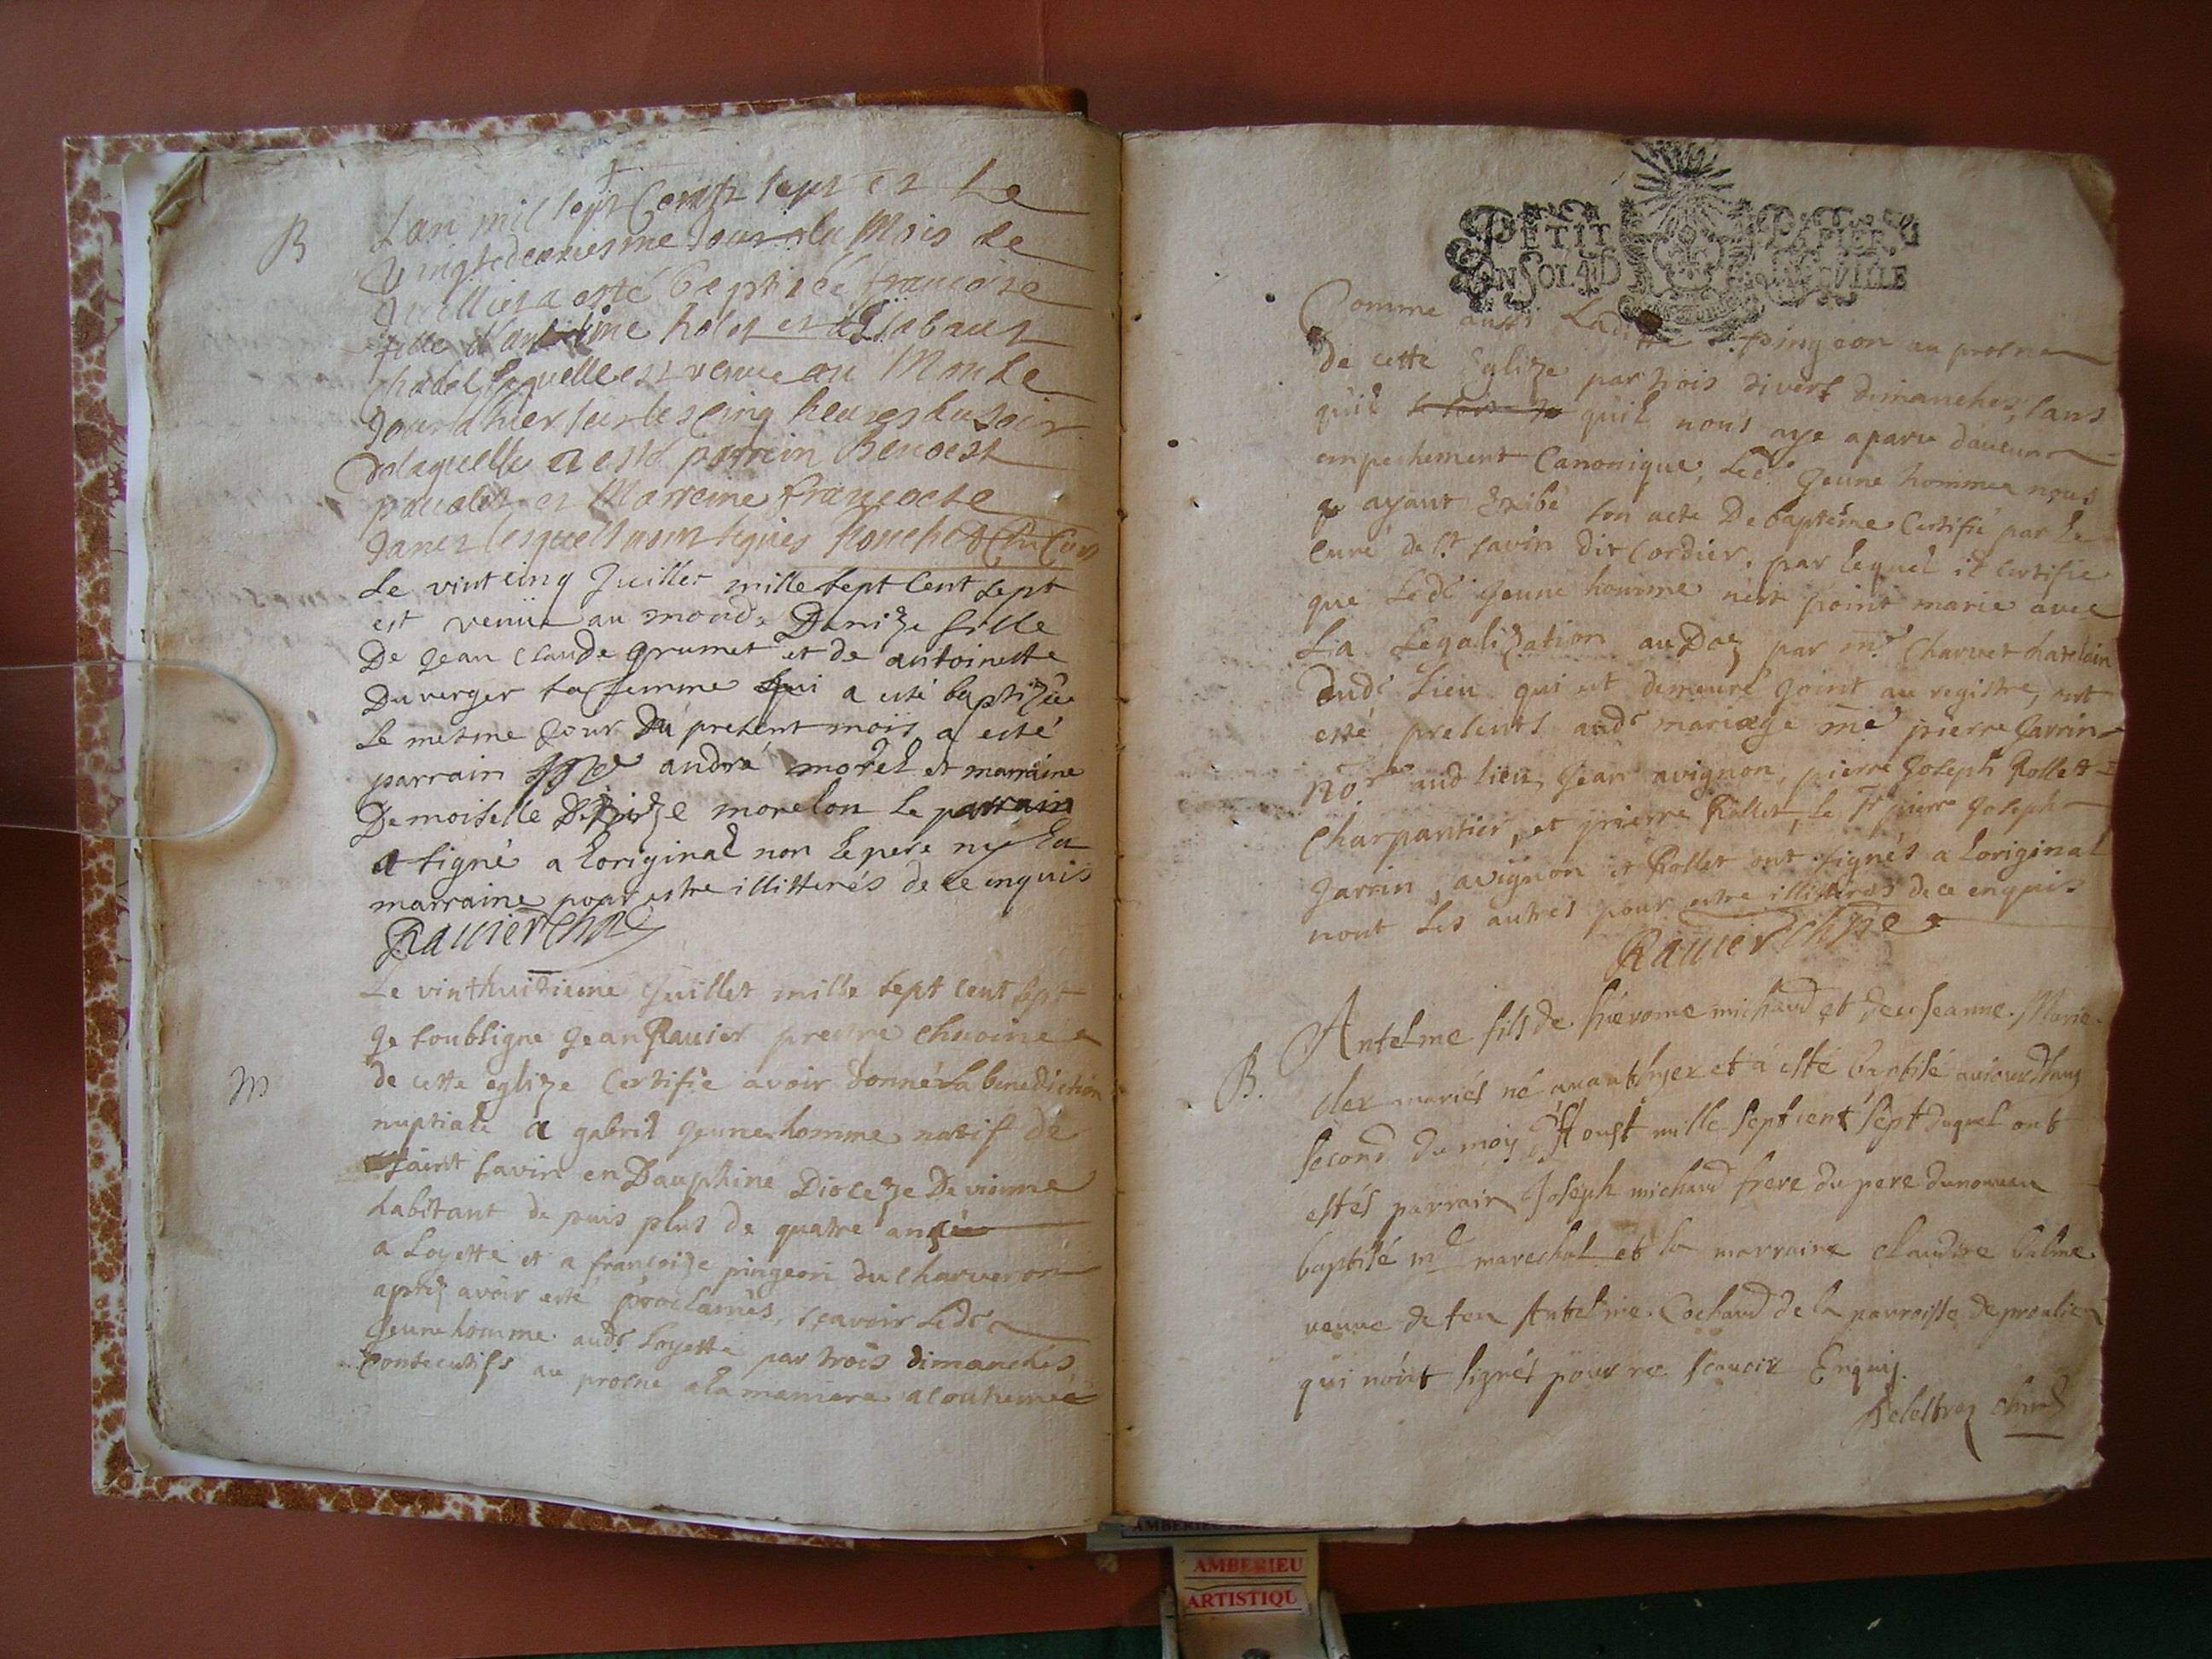 B
Lan mil sept Cents sept et Le
Vingt deuxiesme Jour du Mois de
Juillet a esté Baptisée francoise
fille d'antoine et
laquelle est venue au Monde
Jour d'hier sur les cinq heures du soir
de laquelle a esté parrein Benoist
et Marreine francoise
Janet lesquels nont signés
Le vint cinq Juillet mille sept Cent sept
est venüe au monde Denize fille
De Jean Claude Grumet et de antoinette
Duverger sa femme qui a esté baptizée
le mesme Jour Du present mois a esté
parrain andré morel et marraine
Demoiselle Denize morelon le parrain
a signé a loriginal non le pere ny la
marraine pour estre illitterés de ce enquis
Ravier
M
Le vinthuitieme Juillet mille sept cent sept
Je soubsigne Jean Ravier prestre chnoine
de cette eglize Certifie avoir donné la benediction
nuptiale a gabriel Jeune homme natif de
saint savin en Dauphiné Dioceze De vienne
habitant de puis plus de quatre
a Loyette et a françoize pingeon du Charveron
aprez avoir esté proclamés, sçavoir ledt
Jeune homme audt Loyette par trois dimanches
consecutifs au prosne a la maniere acoutumée
PETIT PAPIER
UN SOL 4 D
Comme aussi Laditte pingeon au prosne
de cette Eglize par trois divers dimanches, sans
quil quil nous aye aparu daucun
empechement Canonique, Ledt Jeune homme nous
ayant Exibé son acte De baptême Certifié par le
curé de st savin dit Cordier, par lequel il certifie
que Ledt Jeune homme nest point marié avec
La Legalization par mr Charvet chatelain
dudt Lieu qui est demeuré Joint au registre, ont
esté presents audt mariage me pierre Jarrin
nore aud lieu, Jean avignon, pierre Joseph Rollet
Charpantier, et pierre Rollet, le sr pierre Joseph
Jarrin, avignon et Rollet ont signés a loriginal
nont les autres pour estre illitterés de ce enquis
Ravier
B.
Antelme fils de hierome michaud et de Jeanne Marie
mariés né avanthyer et a esté baptisé aujourdhuy
second du moy d'Aoust mille sept cent sept duquel ont
estés parrain Joseph michaud frere du pere du nouveau
baptisé me mareschal et la marraine claudine balme
veuve de feu Antelme Cochaud de la parroisse de proulieu
qui n'ont signés pour ne scavoir Enquis.
AMBERIEU
ARTISTIQU